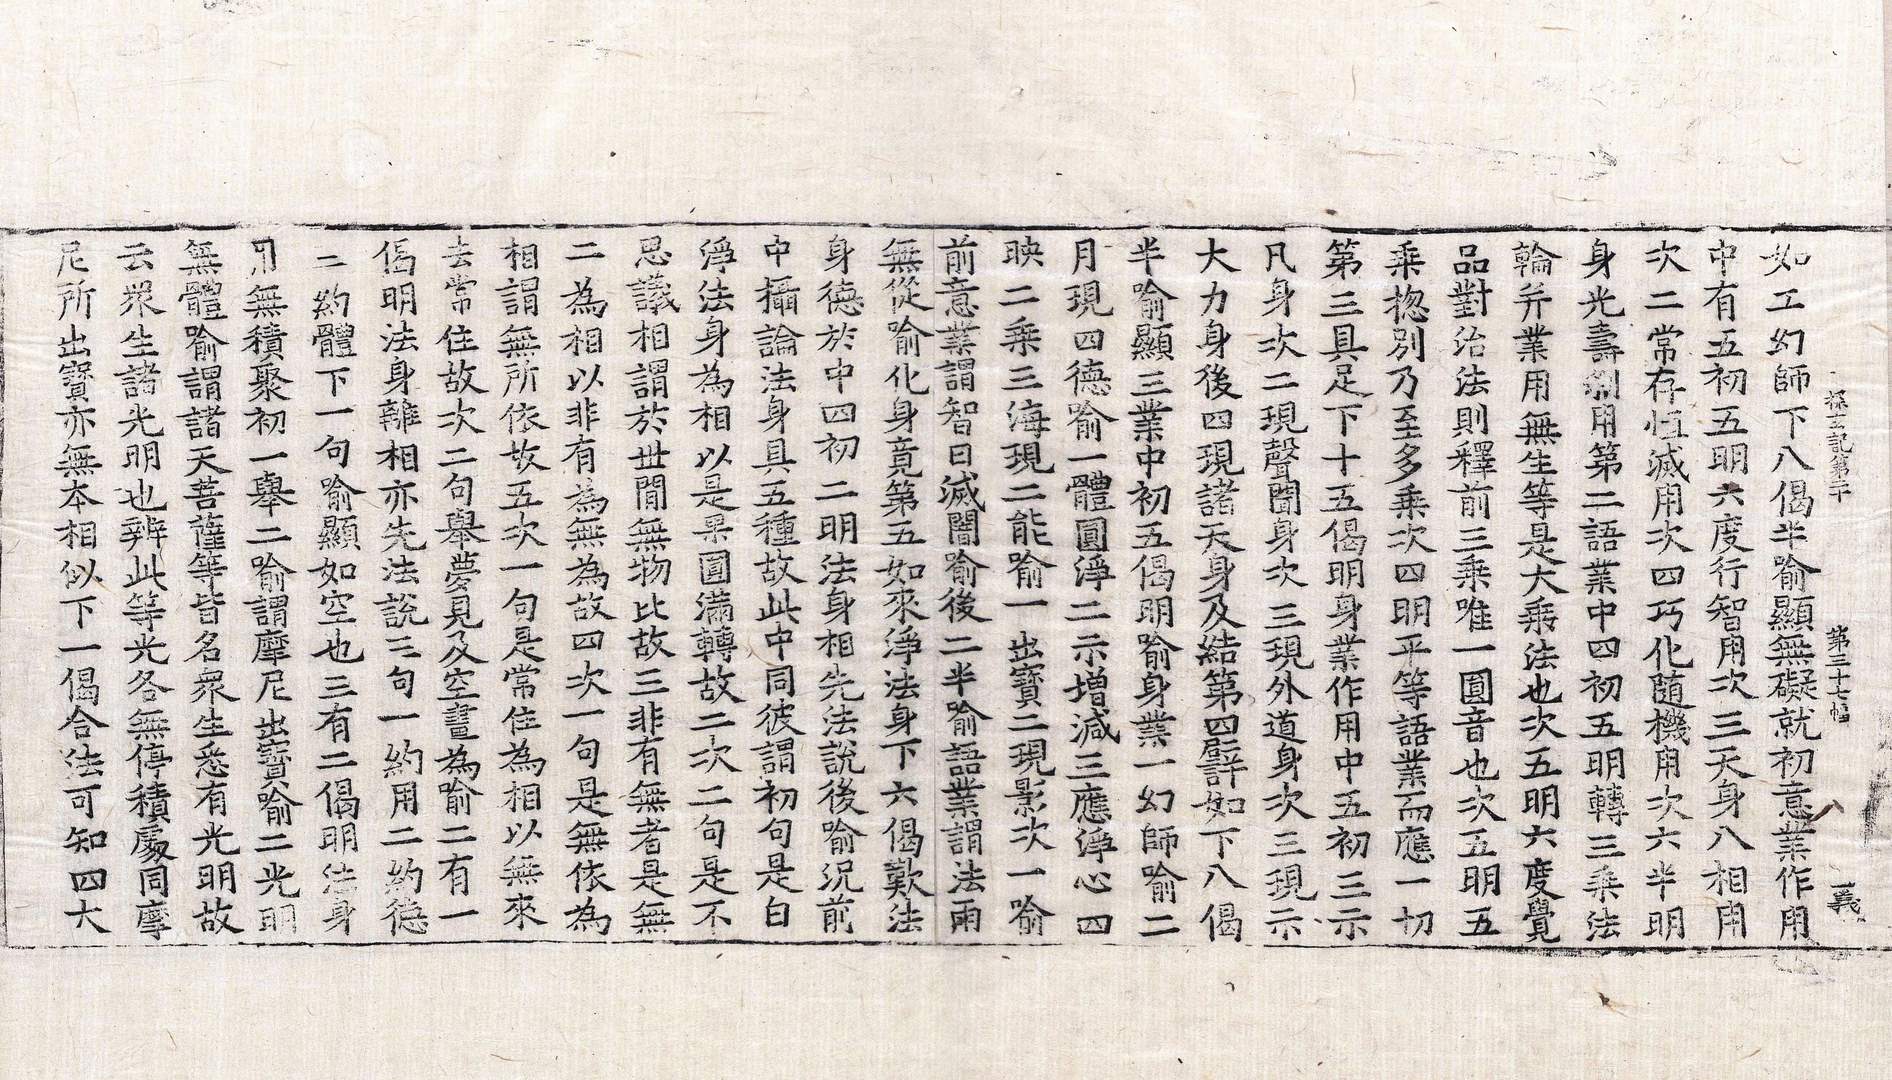 探玄記第二十　第三十七幅　義
如工幻師下八偈半喻顯無礙就初意業作用
中有五初五明六度行智用次三天身八相用
次二常存恒滅用次四巧化随機用次六半明
身光壽剎用第二語業中四初五明轉三乘法
輪并業用無生等是大乘法也次五明六度覺
品對治法則釋前三乘唯一圓音也次五明五
乘惣別乃至多乘次四明平等語業而應一切
第三具足下十五偈明身業作用中五初三示
凡身次二現聲聞身次三現外道身次三現示
大力身後四現諸天身及結第四譬如下八偈
半喻顯三業中初五偈明喻身業一幻師喻二
月現四德喻一體圓淨二示增減三應淨心四
映二乘三海現二能喻一出寶二現影次一喻
前意業謂智日滅闇喻後二半喻語業謂法雨
無從喻化身竟第五如來淨法身下六偈歎法
身德於中四初二明法身相先法說後喻況前
中攝論法身具五種故此中同彼謂初句是白
淨法身為相以是果圓滿轉故二次二句是不
思議相謂於世間無物比故三非有無者是無
二為相以非有為無為故四次一句是無依為
相謂無所依故五次一句是常住為相以無來
去常住故次二句舉夢見及空畫為喻二有一
偈明法身離相亦先法說三句一約用二約德
二約體下一句喻顯如空也三有二偈明法身
用無積聚初一舉二喻謂摩尼出寶喻二光明
無體喻謂諸天菩薩等皆名眾生悉有光明故
云眾生諸光明也辨此等光各無停積處同摩
尼所出寶亦無本相似下一偈合法可知四大